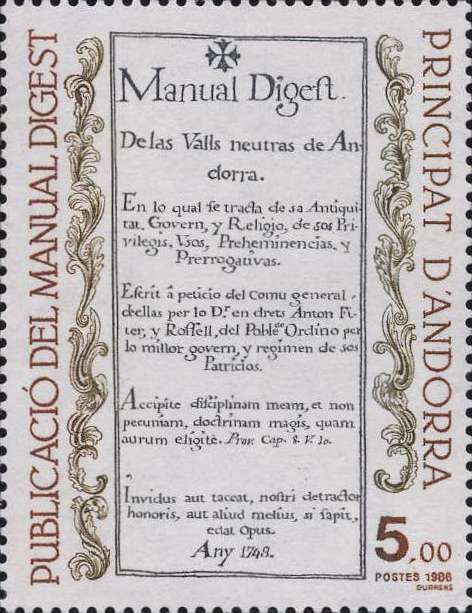 PUBLICACIÓ DEL MANUAL DIGEST
Manual Digeſt.
De las Valls neutras de An-
dorra.
En lo qual ſe tracta de sa Antiqui-
tat, Govern, y Religio, de sos Pri-
vilegis, Vsos, Preheminencias, y
Prerrogativas.
Eſcrit â peticio del Comu general
dellas per lo Dr. en drets Anton Fi-
ter, y Roſſell, del Poble de Ordino per
lo millor govern, y regimen de sos
Patricios.
Accipite diſciplinam meam, et non
pecuniam, doctrinam magis, quam
aurum eligite. Prov. Cap. 8. V. 10.
Invidus aut taceat, noſtri detractor
honoris, aut aliud melius, si sapit,
edat Opus.
Any 1748.
PRINCIPAT D'ANDORRA
5,00
POSTES 1986
DURRENS